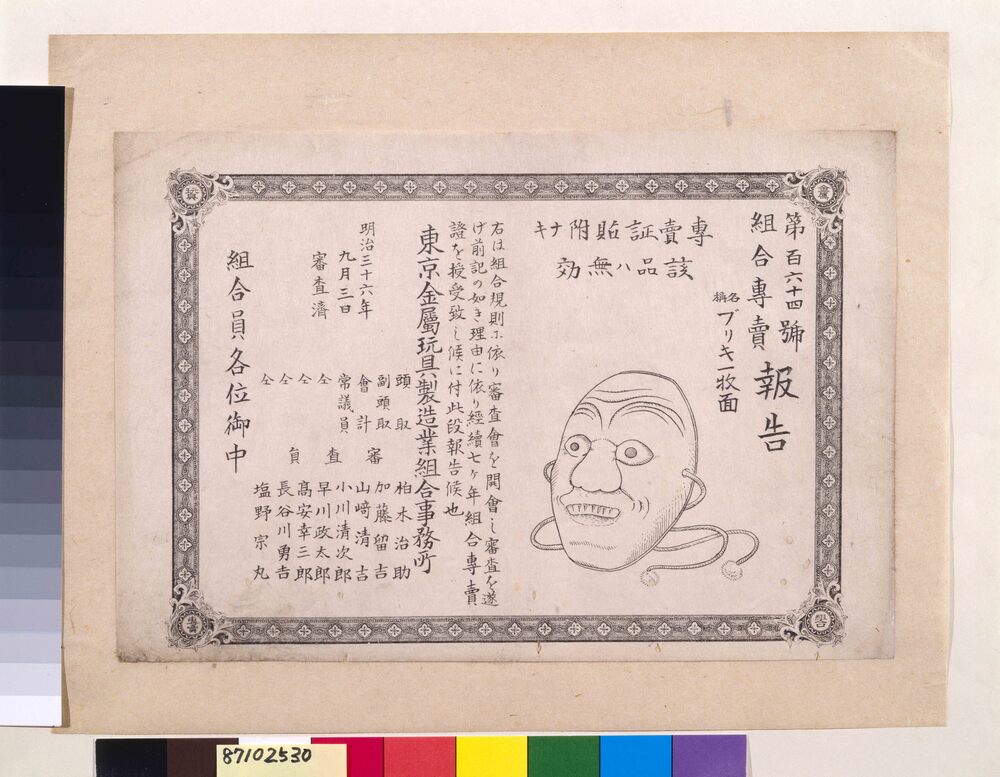 第百六十四號
組合專賣報告
名稱 ブリキ一枚面
專賣証貼附ナキ
該品ハ無効
右は組合規則ニ依り審査會を開會し審査を遂
げ前記の如き理由に依り經續七ヶ年組合專賣
證を授受致し候に付此段報告候也
東京金屬玩具製造業組合事務所
頭取 柏木治助
副頭取 加藤留吉
會計 審 山﨑清吉
常議員 小川清次郎
仝 査 早川政太郎
仝 髙安幸三郎
仝 員 長谷川勇吉
仝 塩野宗丸
明治三十六年
九月三日
審査濟
組合員各位御中
87102530